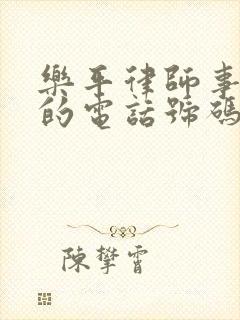 樂平律師事
的電話號碼
陳攀霄